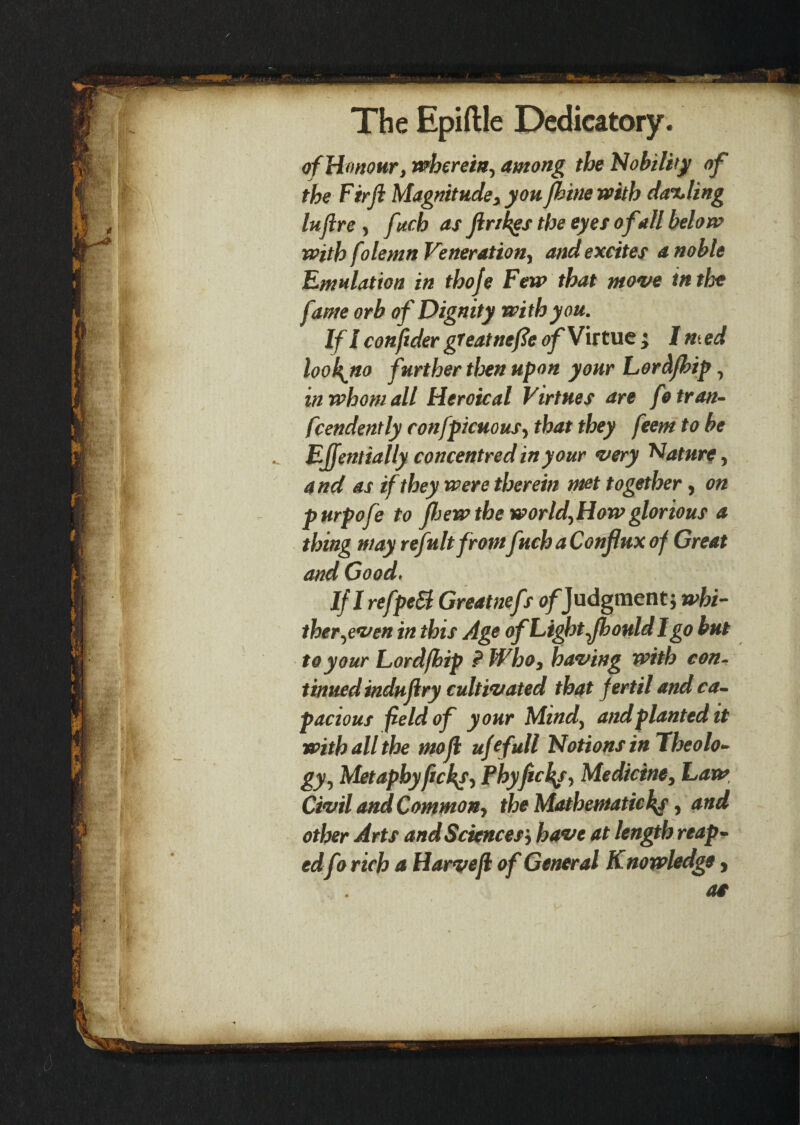 The Epiſtle Dedicatory.
of Honour, wherein, among the Nobility of
the Firſt Magnitude, you ſhine with dazling
luſtre, ſuch as ſtrikes the eyes of all below
with ſolemn Veneration, and excites a noble
Emulation in thoſe Few that move in the
ſame orb of Dignity with you.
If I conſider greatneſſe of Virtue; I need
look no further then upon your Lordſhip,
in whom all Heroical Virtues are ſo tran-
ſcendently conſpicuous, that they ſeem to be
Eſſentially concentred in your very Nature,
and as if they were therein met together, on
purpoſe to ſhew the world, How glorious a
thing may reſult from ſuch a Conflux of Great
and Good.
If I reſpect Greatneſs of Judgment; whi-
ther, even in this Age of Light, ſhould I go but
to your Lordſhip? Who, having with con-
tinued induſtry cultivated that fertil and ca-
pacious field of your Mind, and planted it
with all the moſt uſefull Notions in Theolo-
gy, Metaphyſicks, Phyſicks, Medicine, Law
Civil and Common, the Mathematicks, and
other Arts and Sciences; have at length reap-
ed ſo rich a Harveſt of General Knowledge,
as